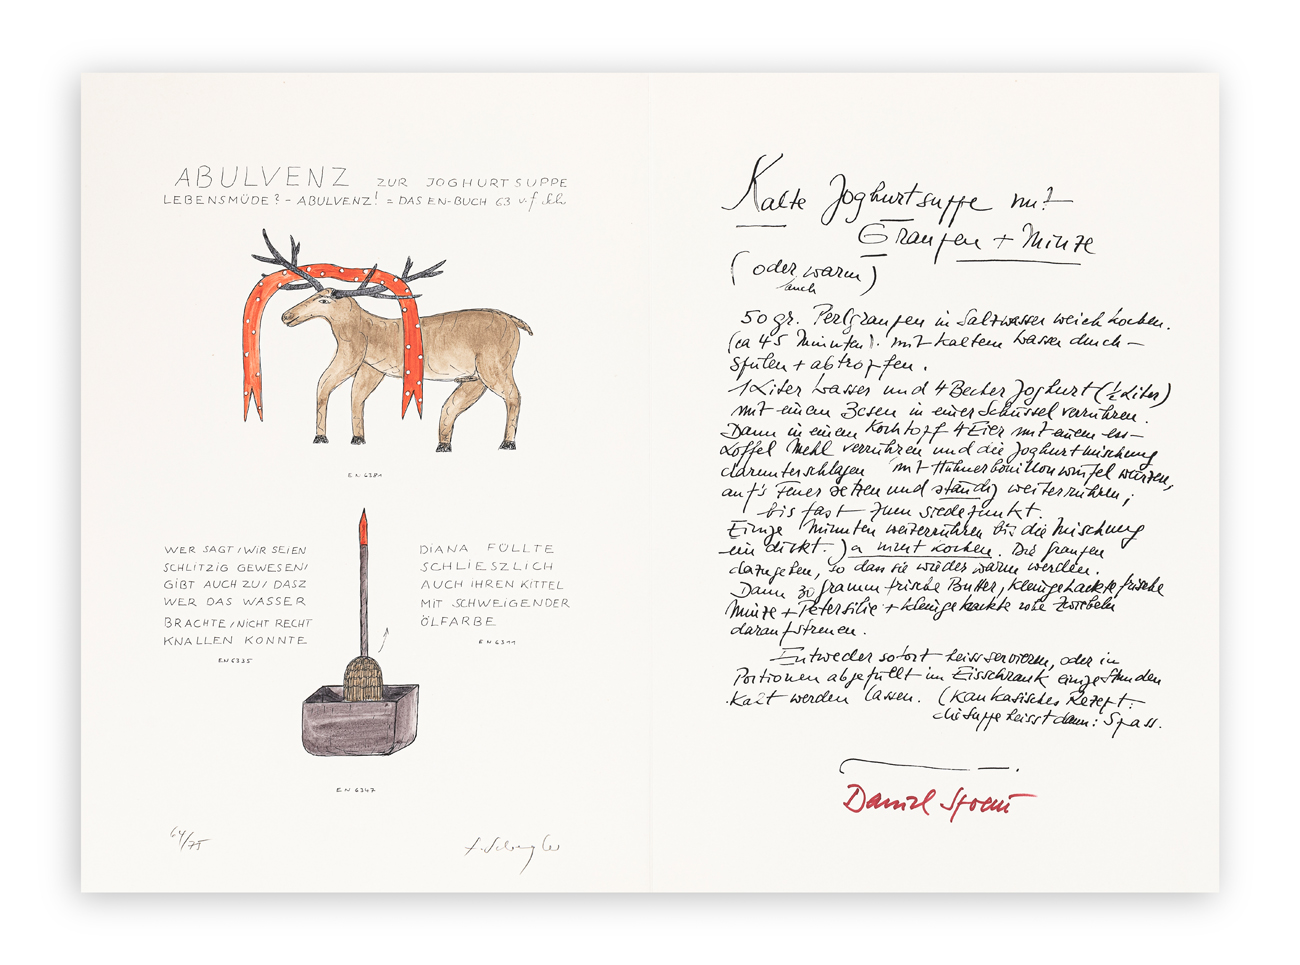 ABULVENZ ZUR JOGHURTSUPPE
LEBENSMÜDE? – ABULVENZ! = DAS EN-BUCH 63 v. f. Sch
EN 6381
WER SAGT, WIR SEIEN
SCHLITZIG GEWESEN,
GIBT AUCH ZU, DASZ
WER DAS WASSER
BRACHTE, NICHT RECHT
KNALLEN KONNTE
EN 6335
DIANA FÜLLTE
SCHLIESZLICH
AUCH IHREN KITTEL
MIT SCHWEIGENDER
ÖLFARBE
EN 6311
EN 6347
64/75
Kalte Joghurtsuppe mit
Graupen + Minze
(oder warm)
auch
50 gr. Perlgraupen in Salzwasser weich kochen.
(ca 45 Minuten). mit kaltem Wasser durch-
spülen + abtropfen.
1 Liter Wasser und 4 Becher Joghurt (½ Liter)
mit einem Besen in einer Schüssel verrühren.
Dann in einem Kochtopf 4 Eier mit einem ess-
Löffel Mehl verrühren und die Joghurtmischung
darunterschlagen mit Hühnerbouillonwürfel würzen,
auf's Feuer setzen und ständig weiterrühren,
bis fast zum siedepunkt.
Einige Minuten weiterrühren bis die Mischung
ein dickt. Ja nicht kochen. Die Graupen
dazugeben, so dass sie wieder warm werden.
Dann 30 gramm frische Butter, kleingehackte frische
Minze + Petersilie + kleingehackte rote Zwiebeln
daraufstreuen.
Entweder sofort heiss servieren, oder in
Portionen abgefüllt im Eisschrank einige Stunden
kalt werden lassen. (Kaukasisches Rezept:
die Suppe heisst dann: Spass.
Daniel Spoerri